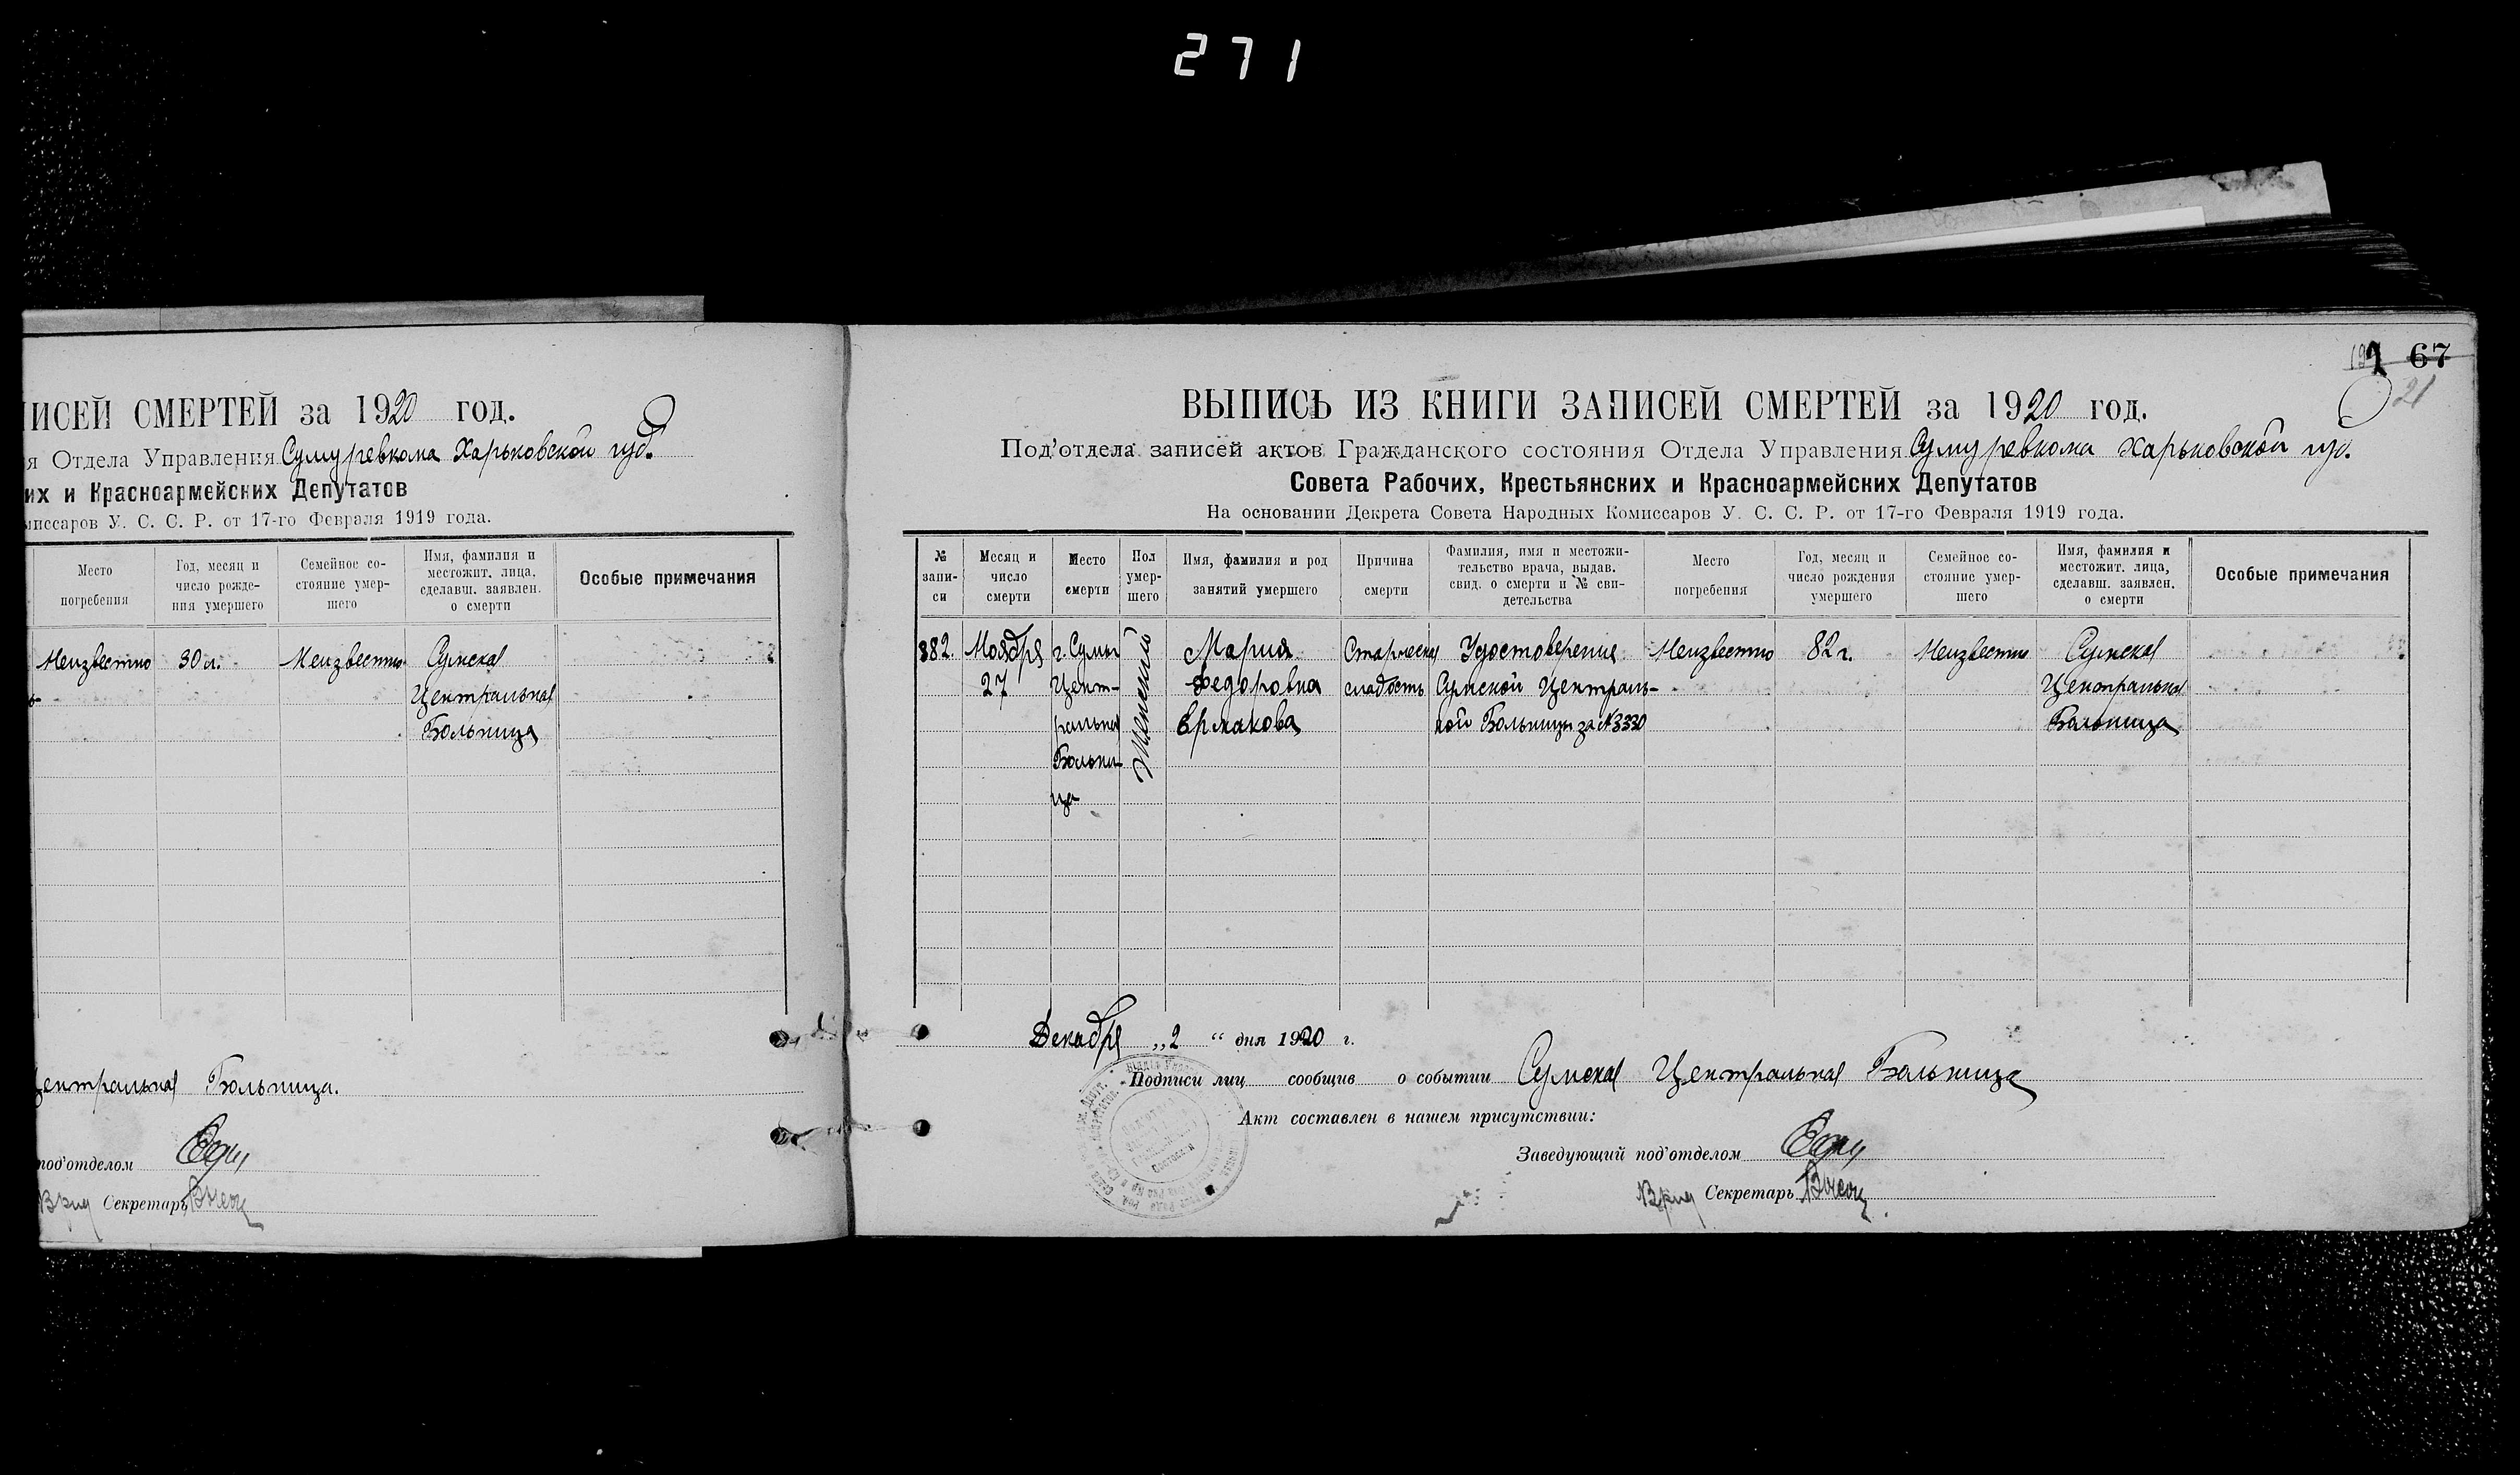 271
ПИСЕЙ СМЕРТЕЙ за 1920 год.
я Отдела Управления Сумуревкома Харьковской губ.
их и Красноармейских Депутатов
миссаров У. С. С. Р. от 17-го Февраля 1919 года.
Место погребения
Год, месяц и число рожде-ния умершего
Семейное со-стояние умер-шего
Имя, фамилия и местожит. лица, сделавш. заявлен. о смерти
Особые примечания
Неизвестно 30 л. Неизвестно Сумская
Центральная
Больница
Центральная Больница.
под'отделом
Врид Секретарь
67
21
ВЫПИСЬ ИЗ КНИГИ ЗАПИСЕЙ СМЕРТЕЙ за 1920 год.
Под'отдела записей актов Гражданского состояния Отдела Управления Сумуревкома Харьковской губ.
Совета Рабочих, Крестьянских и Красноармейских Депутатов
На основании Декрета Совета Народных Комиссаров У. С. С. Р. от 17-го Февраля 1919 года.
№ запи-си
Месяц и число смерти
Место смерти
Пол умер-шего
Имя, фамилия и род занятий умершего
Причина смерти
Фамилия, имя и местожи-тельство врача, выдав. свид. о смерти и № сви-детельства
Место погребения
Год, месяц и число рождения умершего
Семейное со-стояние умер-шего
Имя, фамилия и местожит. лица, сделавш. заявлен. о смерти
Особые примечания
882. Ноября г. Сумы Женский Мария Старческая Удостоверение Неизвестно 82 г. Неизвестно Сумская
27 Цент- Федоровна слабость Сумской Централь- Центральная
ральная Ермакова ной Больницы за №3330 Больница
Больни-
ца
Декабря „2 “ дня 1920 г.
Подписи лиц сообщив о событии Сумская Центральная Больница
Акт составлен в нашем присутствии:
Заведующий под'отделом
Врид Секретарь